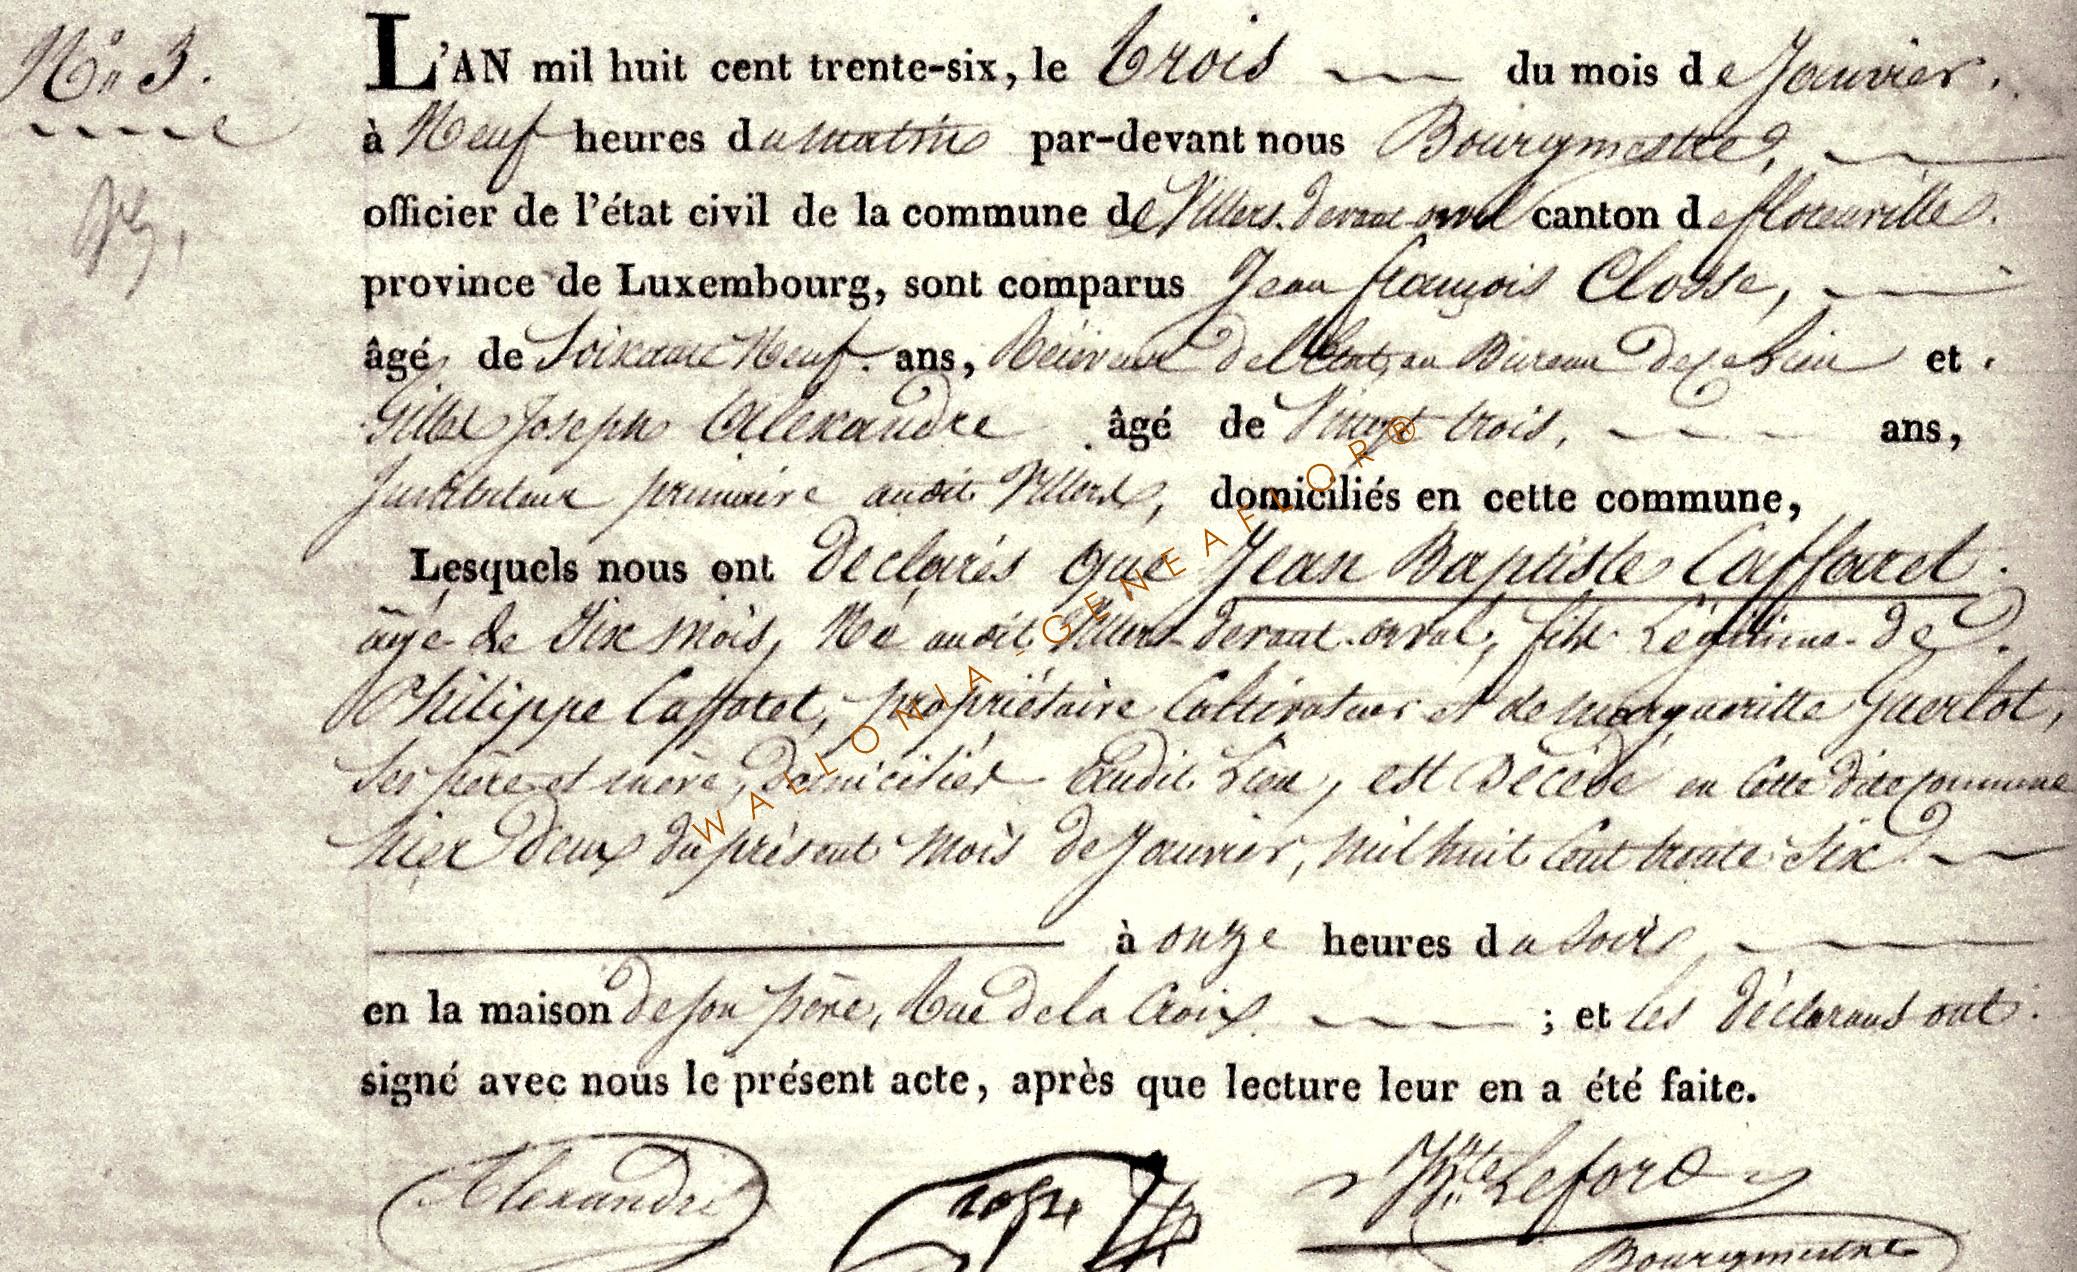 N.º 3.
L'AN mil huit cent trente-six, le trois du mois de Janvier,
à Neuf heures du matin par-devant nous Bourgmestre,
officier de l'état civil de la commune de Villers-devant-orval canton de florenville
province de Luxembourg, sont comparus Jean françois Closse,
âgé de Soixante Neuf ans, Réceveur de l'Etat, au Bureau de ce Lieu et
Gilles Joseph Alexandre âgé de Vingt trois, ans,
Instituteur primaire audit Villers, domiciliés en cette commune,
Lesquels nous ont déclarés que Jean Baptiste Caffaret
âgé de Six mois, Né audit Villers-devant-orval, fils Légitime de
Philippe Caffaret, propriétaire Cultivateur et de margueritte Guerlot,
Ses père et mère, Domiciliés Audit Lieu, est Décédé en Cette dite commune
hier Deux du présent Mois de Janvier, mil huit Cent trente Six
à onze heures du soir,
en la maison de son père, Rue de la Croix ; et les déclarans ont
signé avec nous le présent acte, après que lecture leur en a été faite.
Alexandre
Closse
J. Bte Lefort
Bourgmestre
WALLONIA - GENEAFLOR®